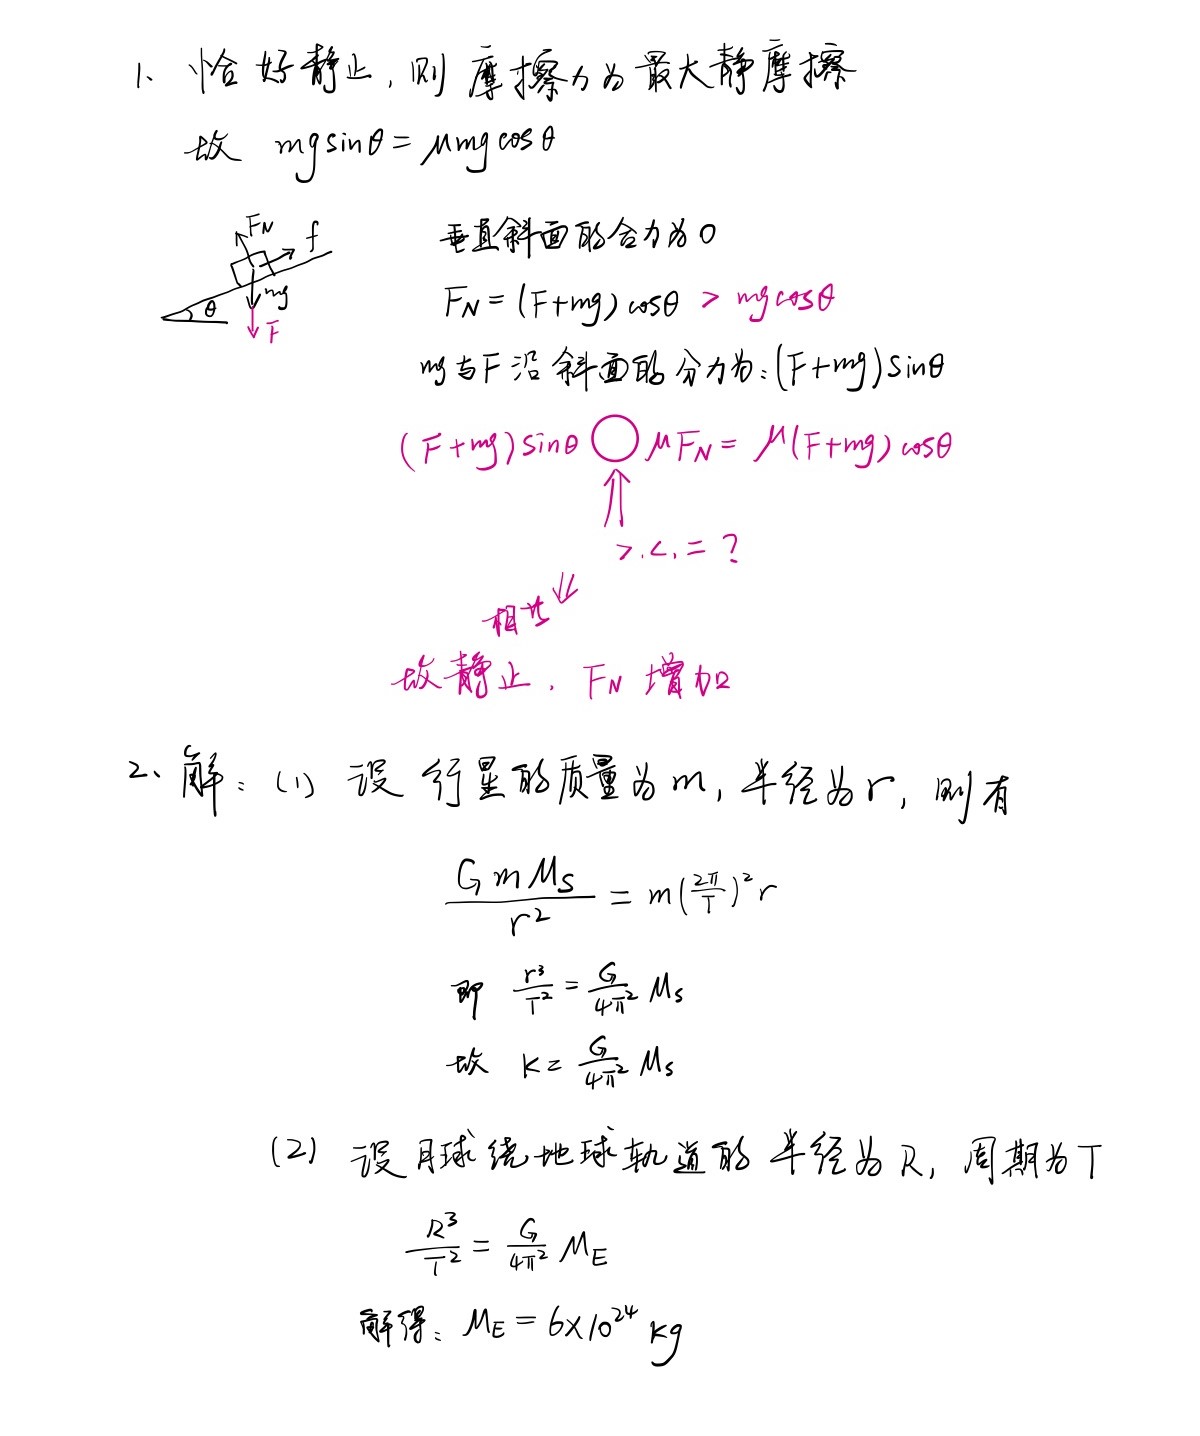 1、恰好静止,则摩擦力为最大静摩擦
故 mgsinθ = μmgcosθ
FN f
mg
θ
F
垂直斜面的合力为0
FN = (F+mg)cosθ > mgcosθ
mg与F沿斜面的分力为:(F+mg)sinθ
(F+mg)sinθ ○ μFN = μ(F+mg)cosθ
>.<.=?
相等
故静止.FN增加
2、解:(1) 设行星的质量为m,半径为r,则有
GmMs/r² = m(2π/T)²r
即 r³/T² = G/4π² Ms
故 K = G/4π² Ms
(2) 设月球绕地球轨道的半径为R,周期为T
R³/T² = G/4π² ME
解得:ME = 6×10²⁴ kg